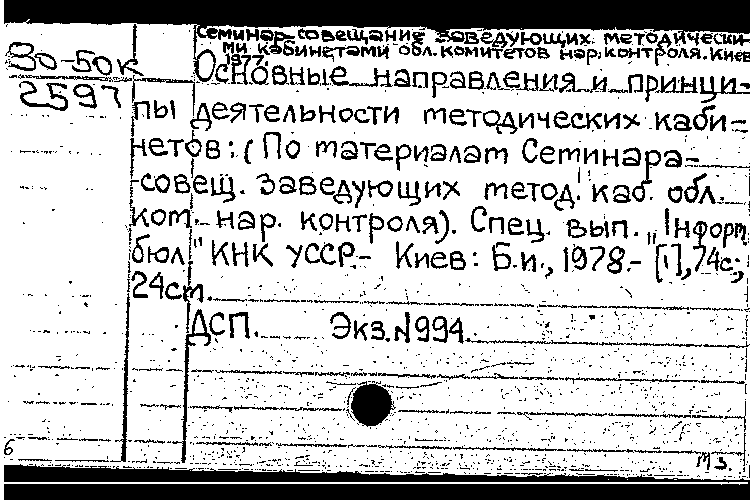 Семинар-совещание заведующих методически-
ми кабинетами обл. комитетов нар. контроля. Киев
1977.
Зо-50к
2597
Основные направления и принци-
пы деятельности методических каби-
нетов: (По материалам Семинара-
-совещ. заведующих метод. каб. обл.
ком. нар. контроля). Спец. вып. „Iнформ.
бюл." КНК УССР.- Киев: Б.и., 1978.- [1], 74с.;
24см.
ДСП. Экз. N994.
6
М З.